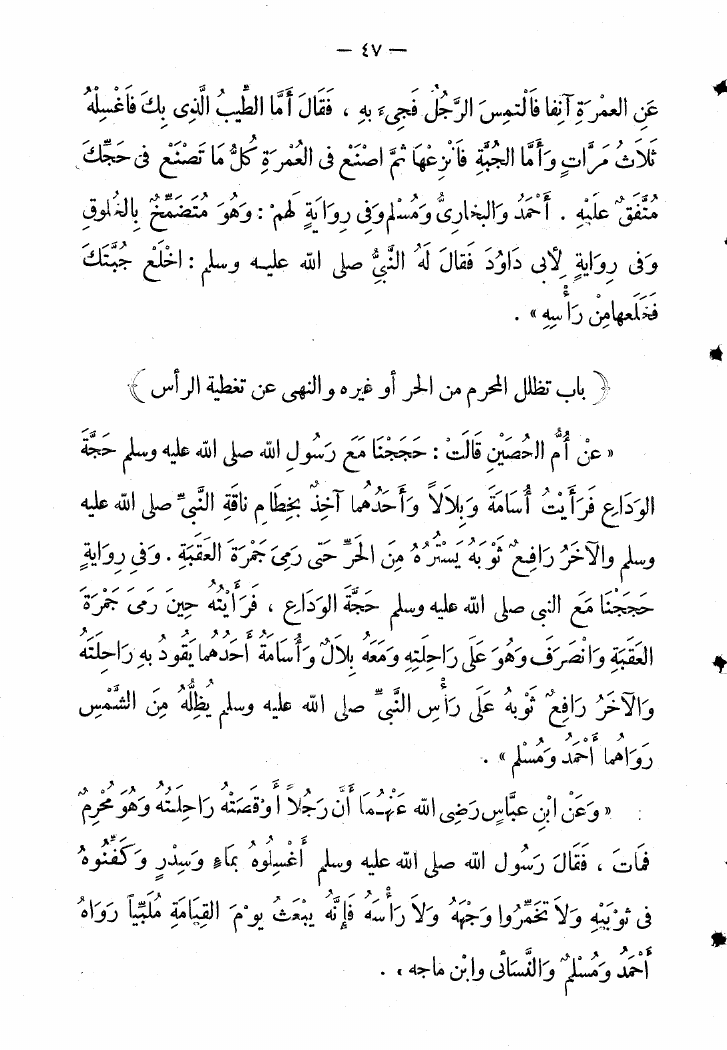 — ٤٧ —
عَنِ العمْرَةِ آنِفا فَالْتمِسَ الرَّجُلُ فَجِيءَ بهِ ، فَقَالَ أَمَّا الطِّيبُ الَّذِى بِكَ فَاغْسِلْهُ
ثَلَاثُ مَرَّاتٍ وَأَمَّا الجُبَّةِ فَانْزِعْهَا ثمَّ اصنَعْ فى العُمْرَةِ كُلُّ مَا تَصْنَعْ فى حَجِّكَ
مُتَّفَقٌ عَلَيْهِ . أَحْمَدُ وَالبخارِىُّ وَمُسْلم وَفى رِوايَةٍ لَهمْ : وَهُوَ مُتَضَمِّخٌ بِالخَلُوقِ
وَفى رِوايَةٍ لِأَبى دَاوُدَ فَقالَ لَهُ النَّبىُّ صلى الله عليه وسلم : اخْلَعْ جُبَّتَكَ
فَخَلَعها مِنْ رَأْسِهِ » .
﴿ باب تظلل المحرم من الحر أو غيره والنهى عن تغطية الرأس ﴾
« عَنْ أُمِّ الحُصَيْنِ قَالَتْ : حَجَجْنَا مَعَ رَسُولِ الله صلى الله عليه وسلم حَجَّةَ
الوَدَاعِ فَرَأَيْتُ أُسَامَةَ وَبِلاَلاً وَأَحَدُهُما آخِذٌ بِخِطَامِ ناقَةِ النَّبىِّ صلى الله عليه
وسلم وَالآخَرُ رَافِعٌ ثَوْبَهُ يَسْتُرُهُ مِنَ الحَرِّ حَتى رَمىَ جَمْرَةَ العَقَبَةِ . وَفى رِوايَةٍ
حَجَجْنَا مَعَ النبى صلى الله عليه وسلم حَجَّةَ الوَدَاعِ ، فَرَأَيْتُهُ حِينَ رَمىَ جَمْرَةَ
العَقَبَةِ وَانْصَرَفَ وَهُوَ عَلَى رَاحِلَتِهِ وَمَعَهُ بِلَالٌ وَأُسَامَةُ أَحَدُهُما يَقُودُ بهِ رَاحِلَتَهُ
وَالآخَرُ رَافِعٌ ثَوْبهُ عَلَى رَأْسِ النَّبىِّ صلى الله عليه وسلم يُظِلُّهُ مِنَ الشَّمْسِ
رَوَاهما أَحْمَدُ وَمُسْلم » .
« وَعَنْ ابْنِ عبَّاسٍ رَضِىَ الله عَنْهُمَا أَنَّ رَجُلاً أَوْقَصَتْهُ رَاحِلَتُهُ وَهُوَ محْرِمٌ
فَمَاتَ ، فَقَالَ رَسُول الله صلى الله عليه وسلم أَغْسِلُوهُ بمَاءٍ وَسِدْرٍ وَكَفِّنُوهُ
فى ثَوْبَيْهِ وَلاَ تخَمِّرُوا وَجْهَهُ وَلاَ رَأْسَهُ فَإِنَّهُ يبْعَثُ يوْمَ القِيَامَةِ مُلَبِّياً رَوَاهُ
أَحْمَدُ وَمُسْلمٌ وَالنَّسَائى وابْن ماجه » .